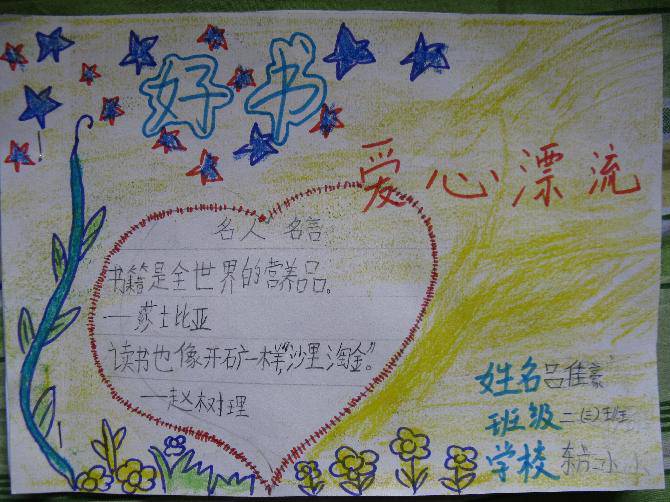 好书
爱心漂流
名人名言
书籍是全世界的营养品。
——莎士比亚
读书也像开矿一样"沙里淘金"。
——赵树理
姓名 吕佳豪
班级 二(三)班
学校 东方小